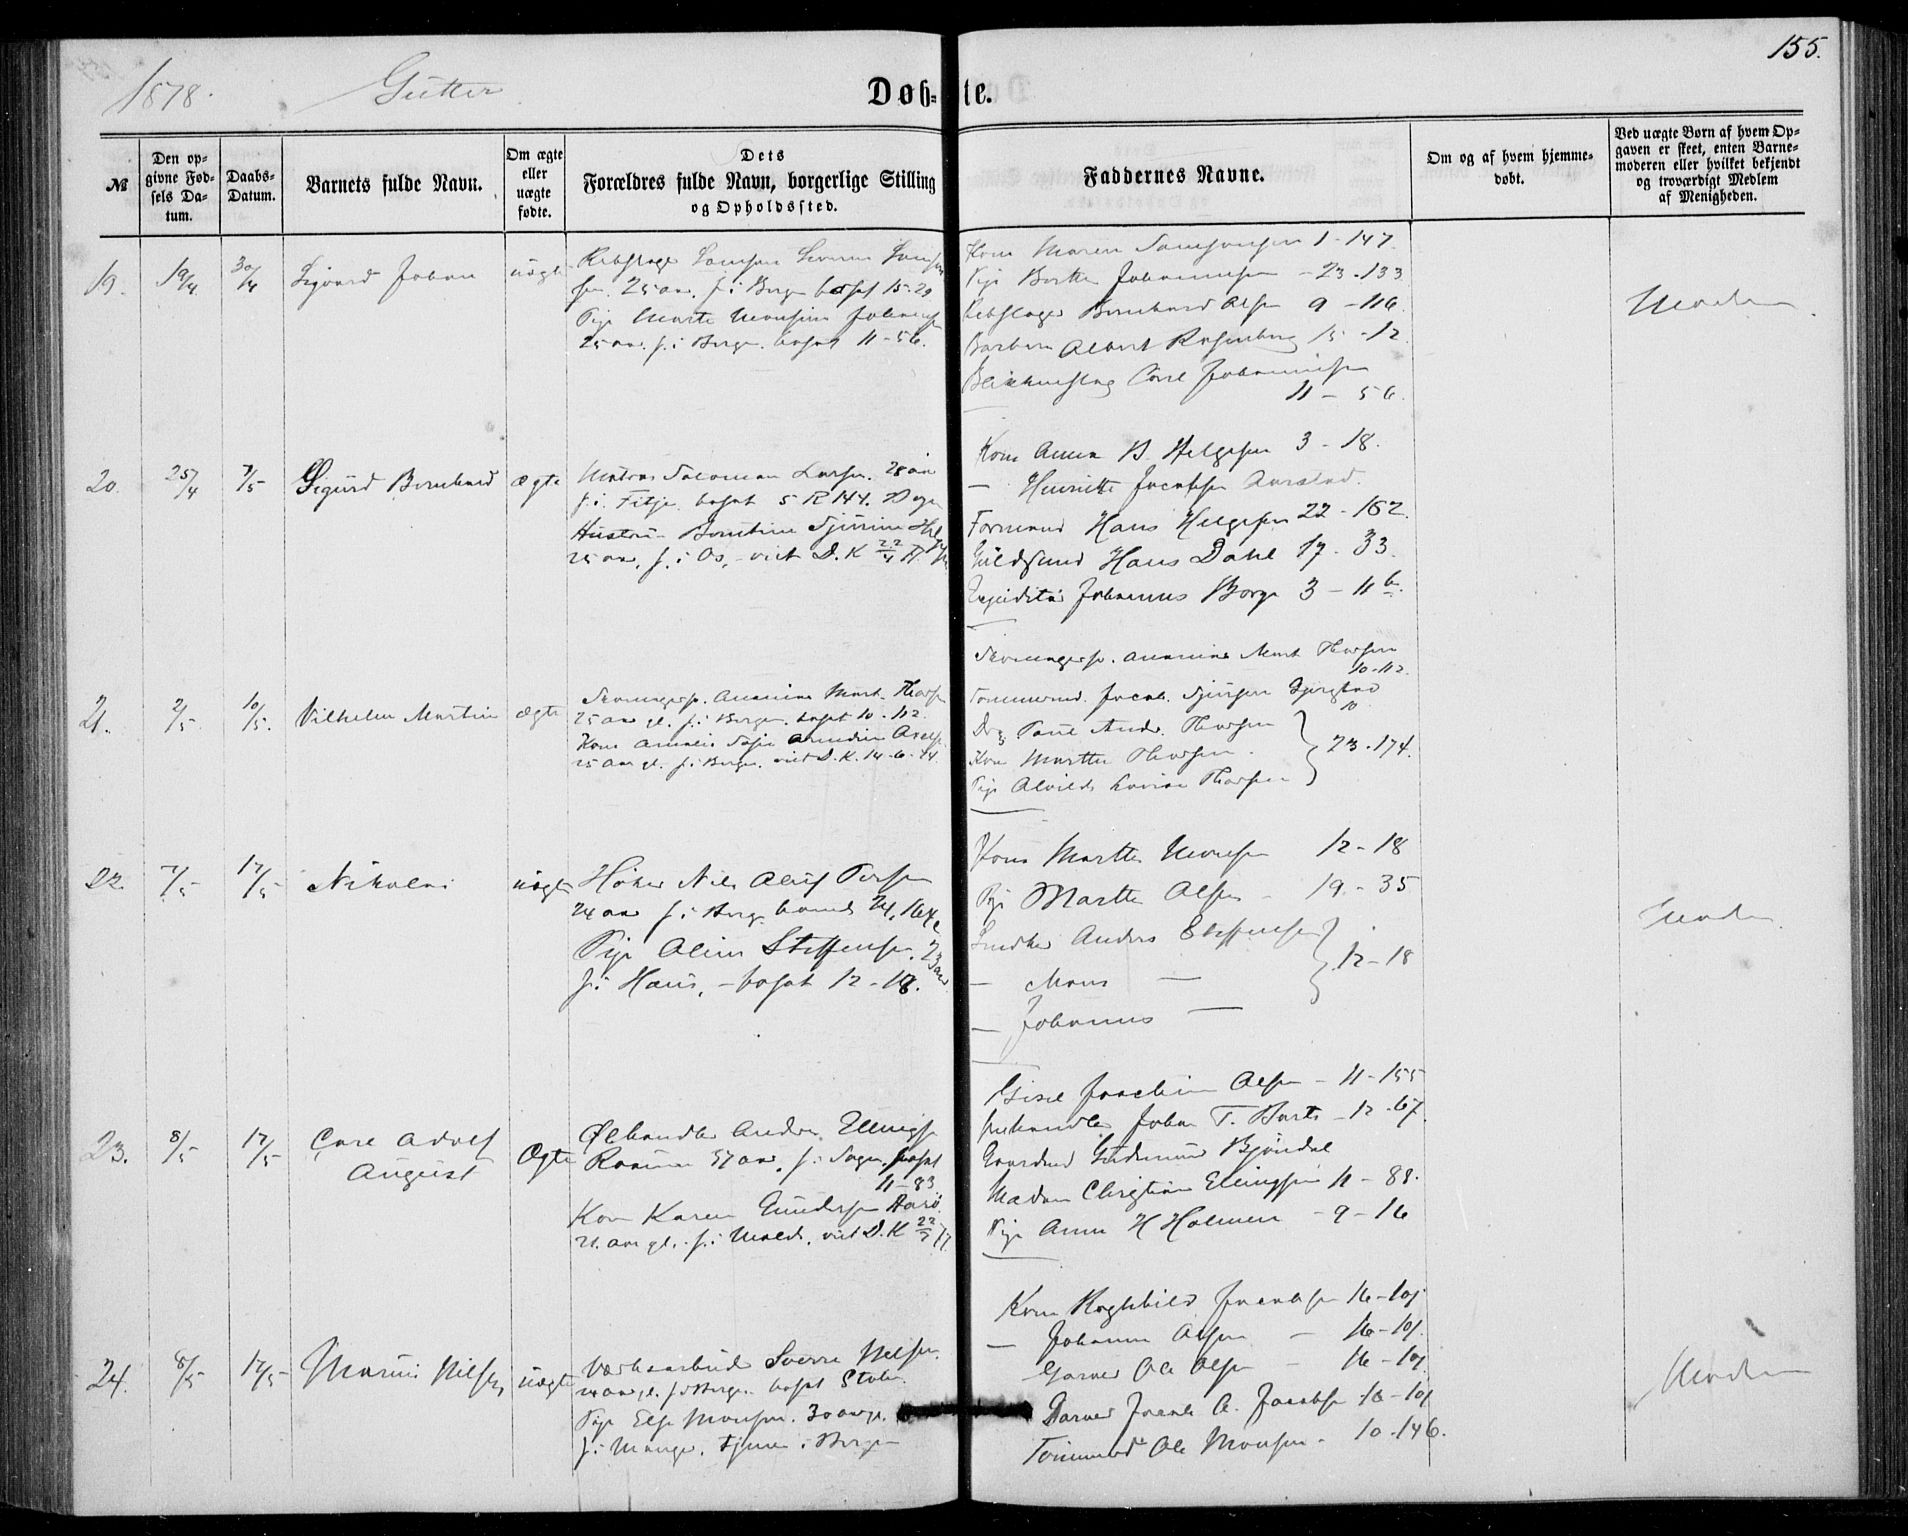 155.
1878. Gutter
Døb-te.
№
Den opgivne Fødsels Datum.
Daabs-Datum.
Barnets fulde Navn.
Om ægte eller uægte fødte.
Dets Forældres fulde Navn, borgerlige Stilling og Opholdssted.
Faddernes Navne.
Om og af hvem hjemmedøbt.
Ved uægte Børn af hvem Opgaven er skeet, enten Barnemoderen eller hvilket bekjendt og troværdigt Medlem af Menigheden.
19. 19/4 30/4 Sigvard Johan uægte
25 aar, f. i Bergen bosat 15-29
Pige Marte Monsine Johannesen
25 aar. f. i Bergen. bosat 11-56.
Kone Maren Samsonsen 1-147.
Pige Berthe Johannesen - 23-133
Rebslager Bernhard Olsen 9-116.
Barber Albert Rosenberg 15-12.
Carl Johannesen
11-56.
Moderen
20. 25/4 7/5 Sigurd Bernhard ægte
Matros Salomon Larsen. 28 aar
f. i Fitje bosat 5 R 144.
Hustru Berntine Sjurine Helgesen
25 aar, f. i Os, - viet D. K 22/4 77.
Kone Anna B. Helgesen 3-18.
- Henrikke Jacobsen Aarstad.
Formand Hans Helgesen 22-162.
Guldsmed Hans Dahl 17-33.
Expeditør Johannes Borge 3-11b.
21. 2/5 10/5. Vilhelm Martin ægte
Skomagersv. Ananias Mart. Thorsen
25 aar gl. f. i Bergen. bosat 10-112.
Kone Amalie Sofie
25 aar gl. f. i Bergen. viet D. K. 14-6-74.
Skomagersv. Ananias Mart. Thorsen
10-112.
Tømmermd. Jacob Sjursen
Thorsen
Kone Marthe Thorsen
23-174.
Pige Alvilde Lovise Thorsen
22. 7/5 17/5 Nikolai uægte
Høker Nils Oluf Persen
24 aar f. i Berg. boende 24, 164c
Pige Oline Steffensen. 23 aar
f. i Haus, - bosat 12-18.
Kone Marthe Monsen 12-18
Pige Marthe Olsen - 19-35
Snedker Anders Steffensen
12-18
- Mons -
- Johannes -
Moderen
23. 8/5 17/5 Carl Adolf ægte
August
Ølhandler Anders Ellingsen
57 aar, f. i Sogn. bosat
11-83
Kone Karen Gundersen Aarø
21. aar gl. f. i Molde, viet D. K 22/5 77.
Joachim Olsen - 11-155
Johan T. Barts - 12-67.
Gudmund Bjøndal
Madam Christiane Ellingsen 11-88.
Pige Anna H Holmen - 9-16
24. 8/5 17/5 Marius Nilsen uægte
Værksarbeider Sverre Nilsen.
24 aar gl. f. i Bergen bosat Stølen.
Pige Else Monsen. 30 aar gl.
f. i Manger. tjener i Bergen
Kone Raghhild Jacobsen 16-101.
- Johanne Olsen - 16-101.
Garver Ole Olsen - 16-101
Garver Jacob A. Jacobsen 16-101
Tømmermd Ole Monsen - 10-146.
Moderen